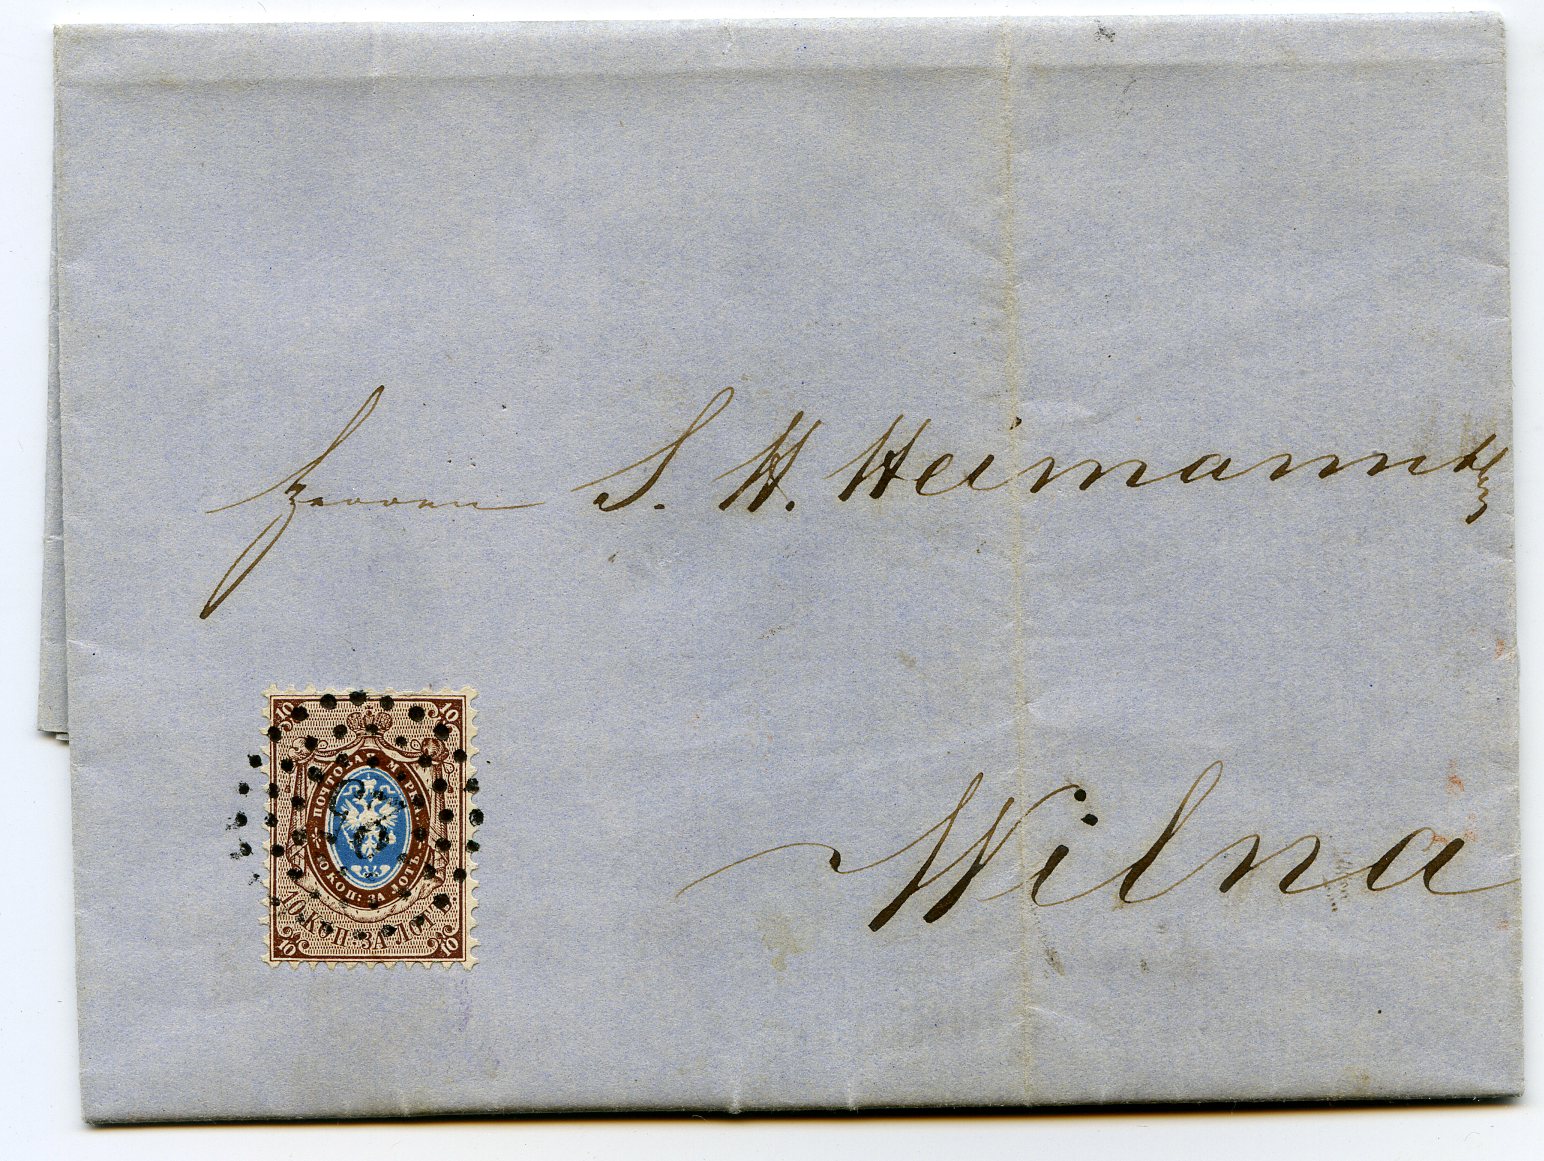 Herren S. H. Heimann &
Wilna
10 10
ПОЧТОВАЯ МАРКА
10 КОП: ЗА ЛОТЪ
10 КОП. ЗА ЛОТЪ
10 10